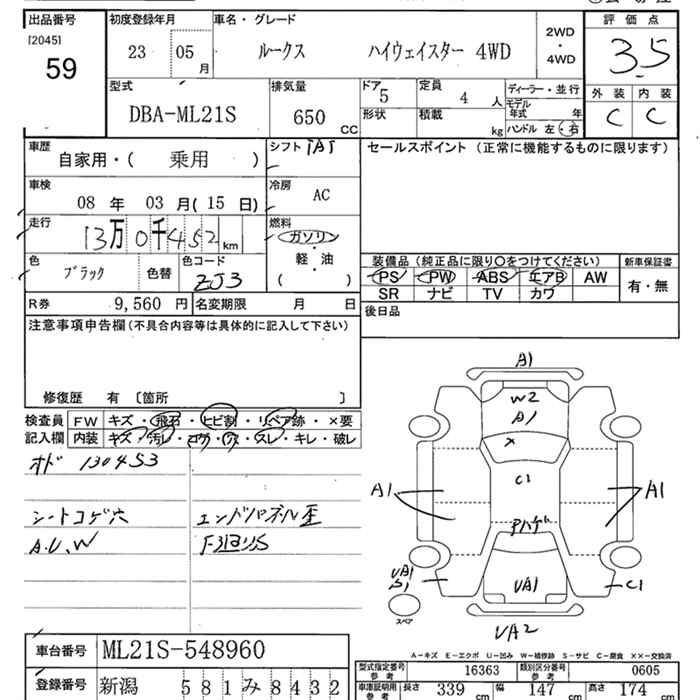 出品番号 初度登録年月 車名・グレード 評価点
[2045]
59 23 05月 ルークス ハイウェイスター 4WD 2WD・4WD 3.5
型式 排気量 ドア 5 定員 4人 ディーラー・並行 外装 内装
DBA-ML21S 650 CC 形状 積載 kg モデル年式 年 C C
ハンドル 左・右
車歴 自家用・( 乗用 ) シフト IAT セールスポイント (正常に機能するものに限ります)
車検 08年 03月 (15日) 冷房 AC
走行 13万0千452km 燃料 ガソリン
軽・油
( )
色 ブラック 色替 色コード ZJ3
装備品 (純正品に限り○をつけてください) 新車保証書
PS PW ABS エアB AW 有・無
SR ナビ TV カワ
R券 9,560円 名変期限 月 日 後日品
注意事項申告欄(不具合内容等は具体的に記入して下さい)
修復歴 有 〔箇所 〕
検査員 FW キズ・飛石・ヒビ割・リペア跡・×要
記入欄 内装 キズ・汚レ・コゲ・穴・スレ・キレ・破レ
オド 130453
シートコゲ穴 エンドパネル歪
A.U.W
A1
W2
A1
×
C1
A1 A1
UA1
S1 UA1 C1
スペア
UA2
A-キズ E-エクボ U-凹み W-補修跡 S-サビ C-腐食 ××-交換済
車台番号 ML21S-548960
登録番号 新潟 581み8432
型式指定番号 参考 16363 類別区分番号 参考 0605
車庫証明用 参考 長さ 339cm 幅 147cm 高さ 174cm